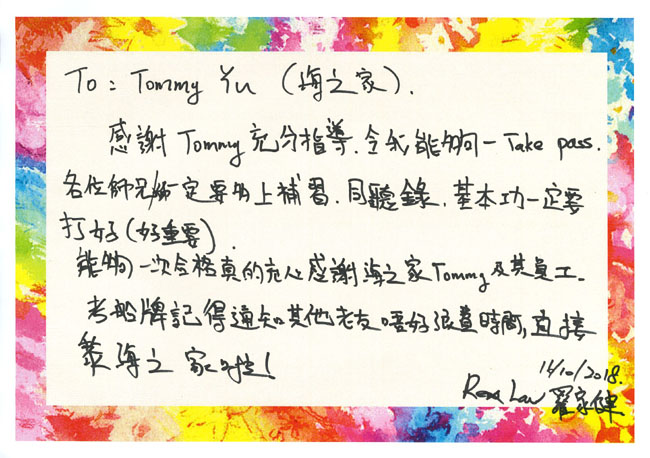 To: Tommy Yu (海之家).
感謝 Tommy 充分指導. 令我能夠一 Take pass.
各位師兄姊一定要多上補習. 同聽錄. 基本功一定要
打好 (好重要).
能夠一次合格真的充心感謝海之家Tommy及其員工.
考船牌記得通知其他老友唔好浪費時間, 直接
黎海之家啦!
14/10/2018.
Law 羅家健